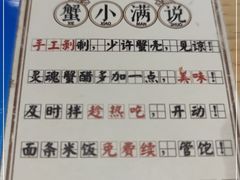 蟹小满说
XIE XIAO MAN SHUO
手工剥制,少许蟹壳,见谅!
灵魂蟹醋多加一点,美味!
及时拌趁热吃,开动!
面条米饭免费续,管饱!